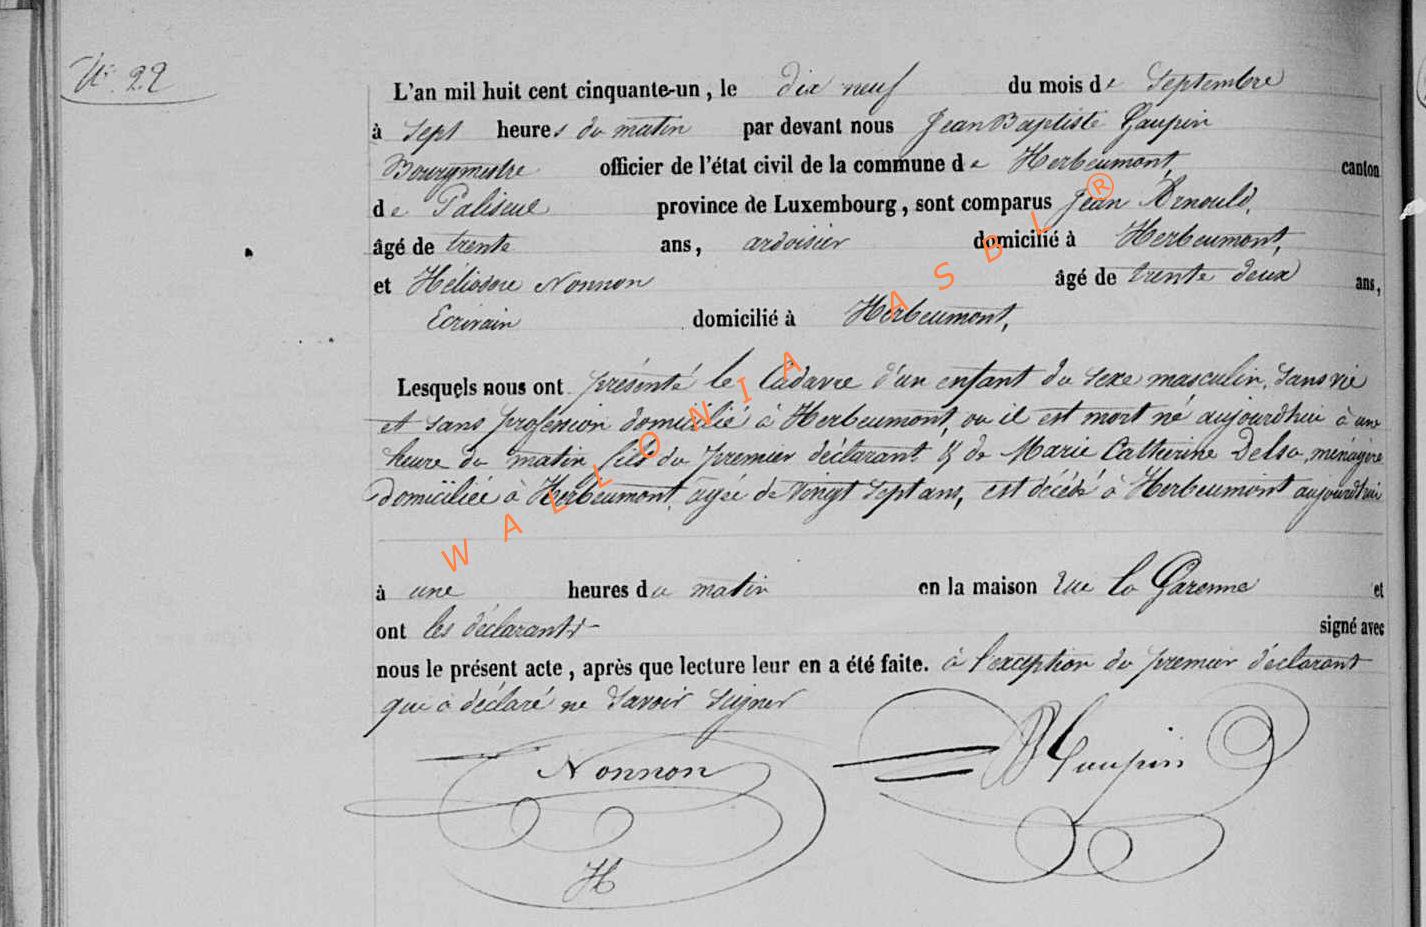 N° 22
L'an mil huit cent cinquante-un, le dix neuf du mois de Septembre
à Sept heures du matin par devant nous Jean Baptiste Gaupin
Bourgmestre officier de l'état civil de la commune de Herbeumont, canton
de Paliseul province de Luxembourg, sont comparus Jean Arnould,
âgé de trente ans, ardoisier domicilié à Herbeumont,
et Héliodore Nonnon âgé de trente deux ans,
Ecrivain domicilié à Herbeumont,
Lesquels nous ont présenté le Cadavre d'un enfant du Sexe masculin, Sans vie
et sans profession domicilié à Herbeumont, ou il est mort né aujourdhui à une
heure du matin fils du premier déclarant & de Marie Catherine Delsa, ménagère
domiciliée à Herbeumont, agée de Vingt Sept ans, est décédé à Herbeumont aujourdhui
à une heures du matin en la maison rue la Garenne et
ont les déclarants signé avec
nous le présent acte, après que lecture leur en a été faite. à l'exception du premier déclarant
qui a déclaré ne Savoir Signer
Nonnon Gaupin
H
WALLONIA ASBL ®